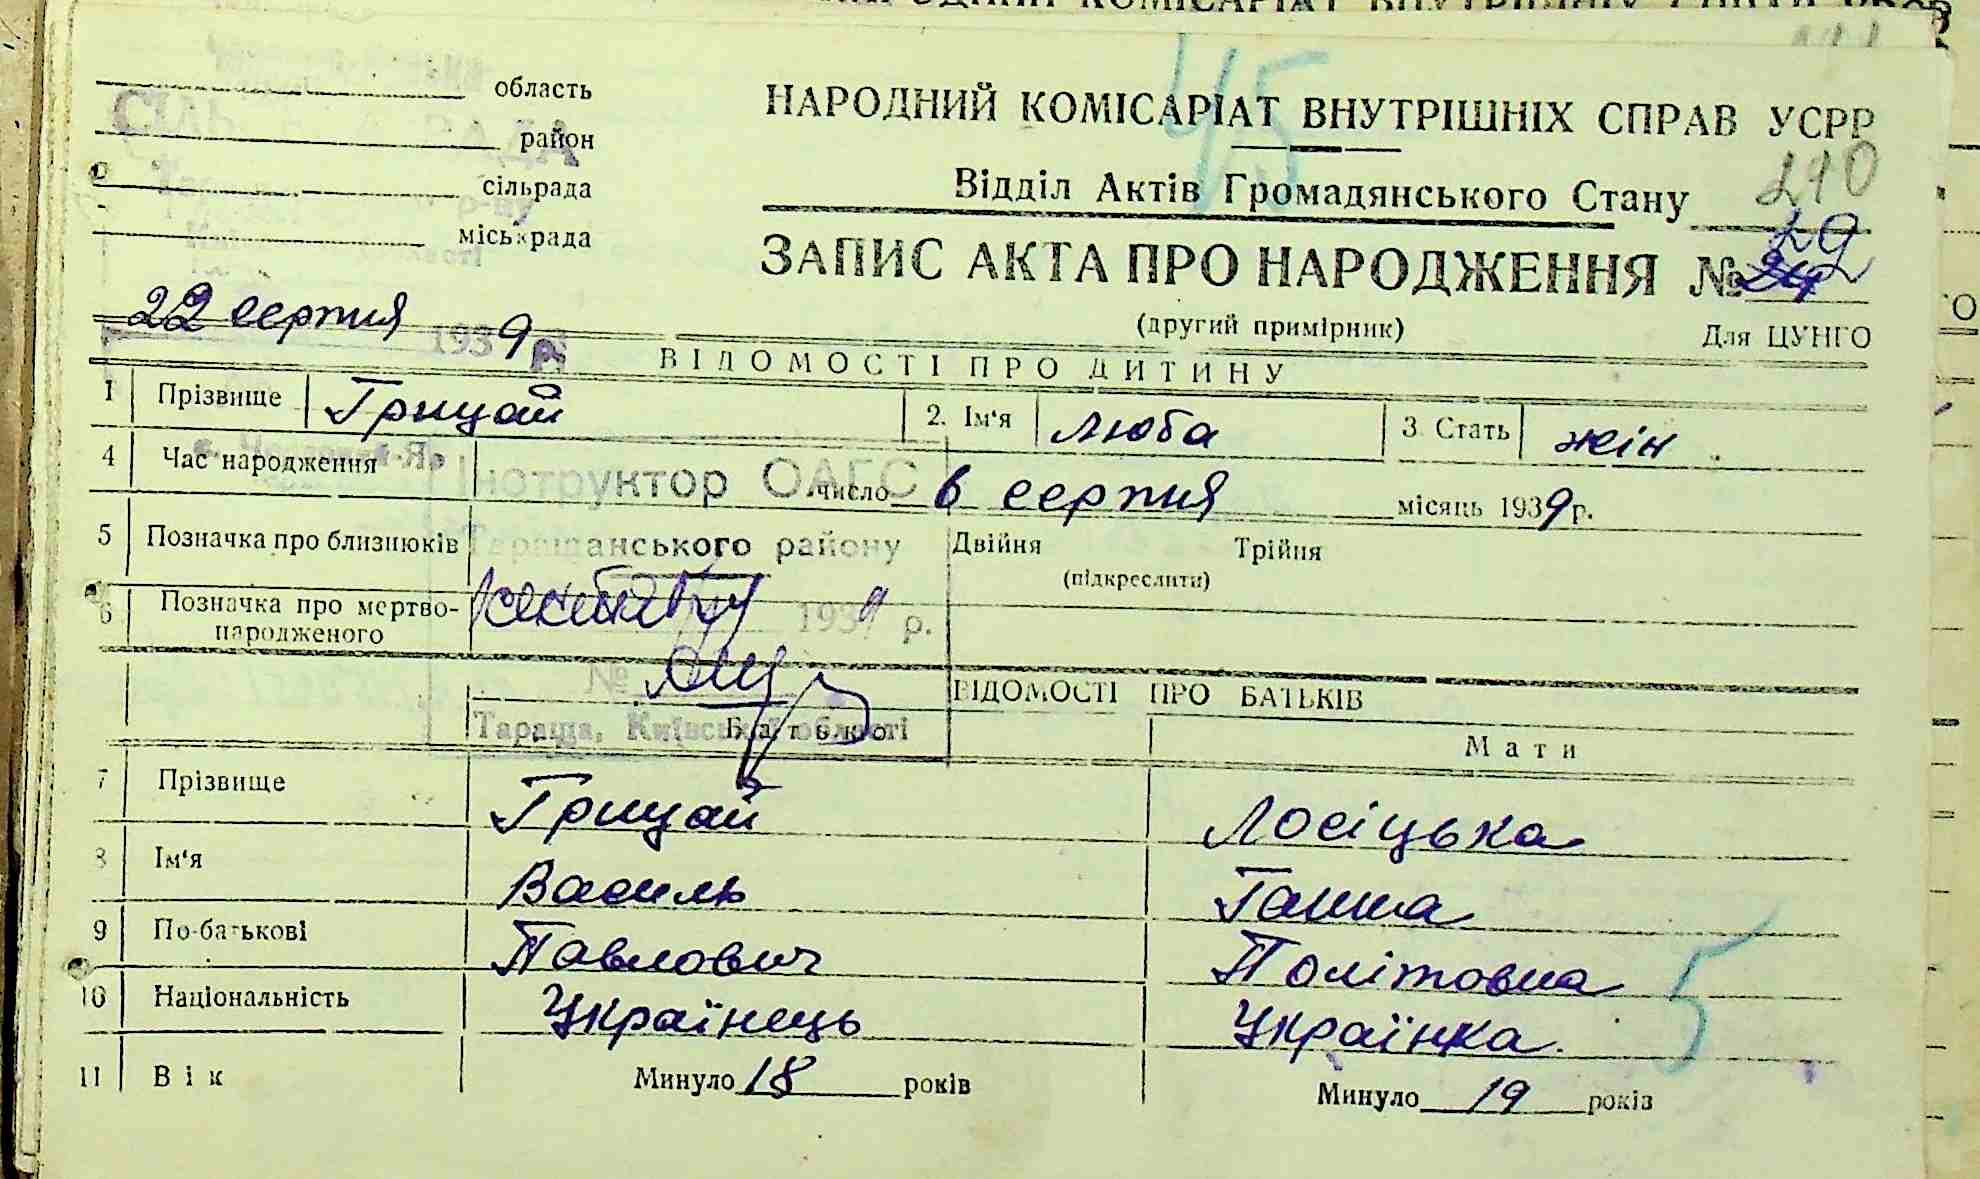 область
район
сільрада
міськрада
НАРОДНИЙ КОМІСАРІАТ ВНУТРІШНІХ СПРАВ УСРР
45
210
Відділ Актів Громадянського Стану
ЗАПИС АКТА ПРО НАРОДЖЕННЯ № 24 29
(другий примірник) Для ЦУНГО
22 серпня 1939 р.
ВІДОМОСТІ ПРО ДИТИНУ
1 Прізвище Грицай 2. Ім'я Люба 3. Стать жін.
4 Час народження число 6 серпня місяць 1939 р.
Інструктор ОАГС
5 Позначка про близнюків Двійня Трійня
Таращанського району
(підкреслити)
6 Позначка про мертво-
народженого
1939 р.
№
ВІДОМОСТІ ПРО БАТЬКІВ
Тараща, Київської області
Батько Мати
7 Прізвище Грицай Лосіцька
8 Ім'я Василь Ганна
9 По-батькові Павлович Політовна
10 Національність Українець Українка.
5
11 Вік Минуло 18 років Минуло 19 років